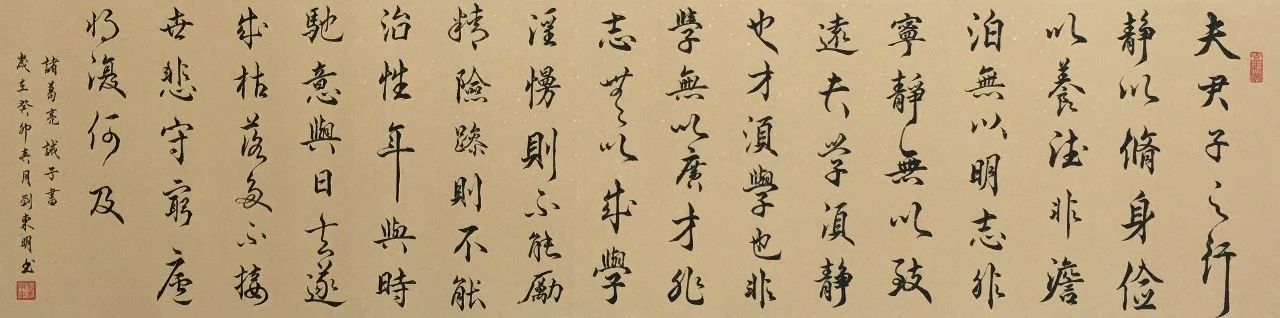 夫君子之行
靜以脩身儉
以養德非澹
泊無以明志非
寧靜無以致
遠夫學須靜
也才須學也非
學無以廣才非
志無以成學
淫慢則不能勵
精險躁則不能
治性年與時
馳意與日去遂
成枯落多不接
世悲守窮廬
將復何及
諸葛亮誡子書
歲在癸卯月劉東明書